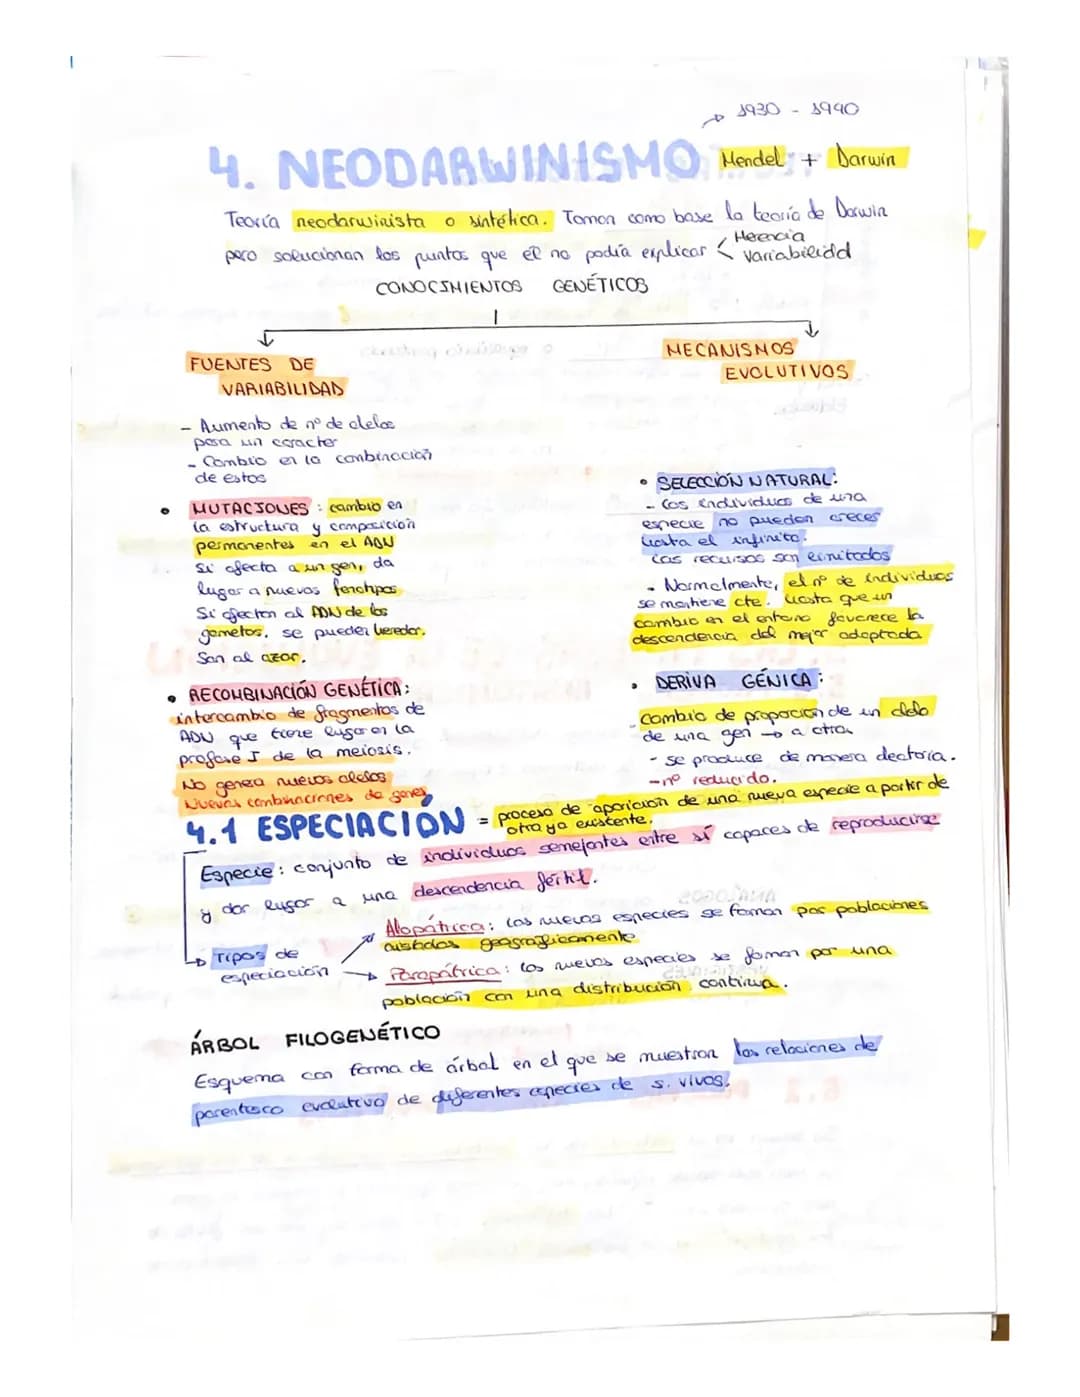 1930 - 1940
4. NEODARWINISMO Mendel + Darwin
Teoría neodarwinista o sintética. Toman como base la teoría de Darwin
pero solucionan los puntos que él no podía explicar < Herencia
Variabilidad
CONOCIMIENTOS GENÉTICOS
FUENTES DE
VARIABILIDAD
- Aumento de nº de alelos
para un caracter
- Cambio en la combinación
de estos
• MUTACIONES : cambio en
la estructura y composición
permanentes en el ADN
Si afecta a un gen, da
lugar a nuevos fenotipos
Si afectan al ADN de los
gametos, se pueden heredar.
Son al azar.
• RECOMBINACIÓN GENÉTICA:
intercambio de fragmentos de
ADN que tiene lugar en la
profase I de la meiosis.
No genera nuevos alelos
Nuevas combinaciones de genes
MECANISMOS
EVOLUTIVOS
• SELECCIÓN NATURAL:
- Los individuos de una
especie no pueden crecer
hasta el infinito.
Los recursos son limitados
- Normalmente, el nº de individuos
se mantiene cte. hasta que un
cambio en el entorno favorece la
descendencia del mejor adaptado
• DERIVA GÉNICA:
- Cambio de proporción de un alelo
de una gen → a otra
- se produce de manera aleatoria.
- nº reducido.
4.1 ESPECIACIÓN = proceso de aparición de una nueva especie a partir de
otra ya existente.
Especie: conjunto de individuos semejantes entre sí capaces de reproducirse
y dar lugar a una descendencia fértil.
→ Tipos de
especiación
↗ Alopátrica: Las nuevas especies se forman por poblaciones
aisladas geograficamente
→ Parapátrica: las nuevas especies se forman por una
población con una distribución continua.
ÁRBOL FILOGENÉTICO
Esquema con forma de árbol en el que se muestran las relaciones de
parentesco evolutivo de diferentes especies de s. vivos.